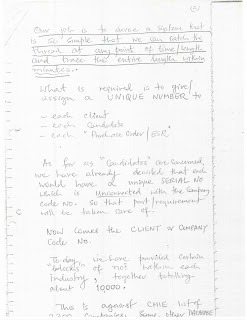 (3)
Our job is to devise a system but
is so simple that we can catch the
thread at any point of time/length
and trace the entire length within
minutes.
What is required is to give/
assign a UNIQUE NUMBER to
- each client
- each Candidate
- each "Purchase Order/ESR
As far as "Candidates" are concerned,
we have already decided that each
would have a unique SERIAL NO
which is Unconnected with the Company
Code NO. So that part/requirement
will be taken care of.
NOW comes the CLIENT or COMPANY
Code NO.
Today, we have provided certain
"blocks" of nos within each
industry, together totalling
about 10000.
This is against CMIE list of